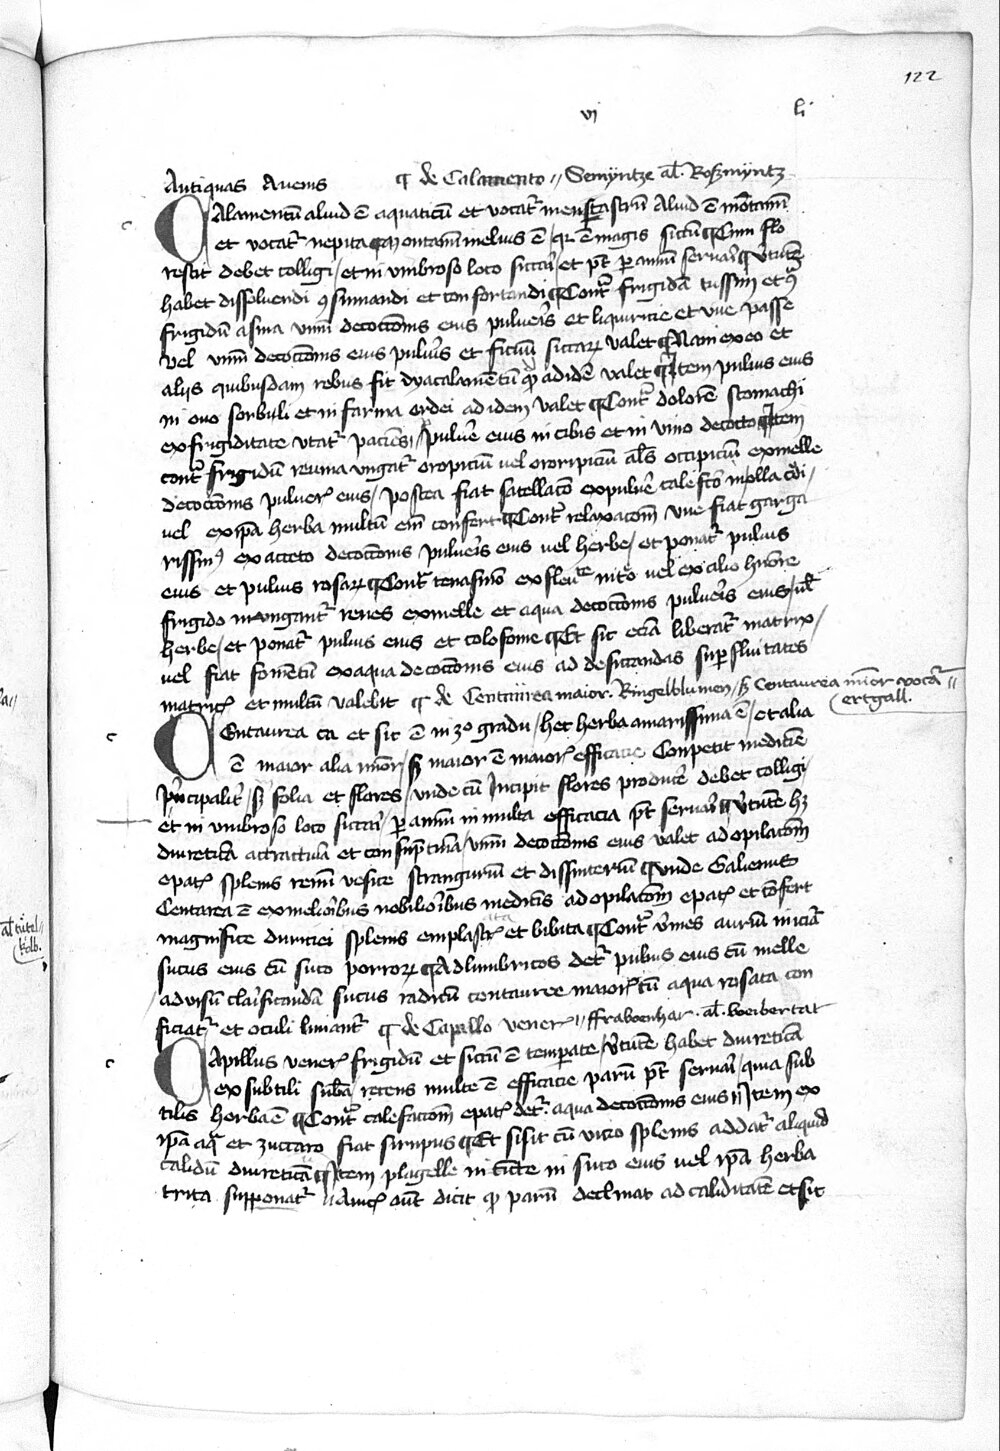 122
vi li
Antiquas Avenis ¶ de Calamento // Semyntze al̄. Roßmyntz
CAlamentū aliud ē aquaticū et vocatᷣ menstastrū Aliud ē mōtanū
et vocatᷣ nepita ¶ Montanū melius ē / qꝛ ē magis siccū ¶ Cum flo
rescit debet colligi / et in vmbroso loco siccari / et pt̄ p annū servari ¶ v̓tutē
habet dissolvendi ꝯsumandi et confortandi ¶ Contᷣ frigidā tussim et
frigidū asma vinū decoctionis eius pulveris et liquiricie et vve passe
vel vinū decoctōnis eius pulvis et ficuū siccarꝝ valet ¶ Nam ex eo et
alijs quibusdam rebus fit dyacalamētū qd̓ ad idē valet ¶ Item pulvis eius
in ovo sorbili et in farina ordei ad idem valet ¶ Contᷣ dolorē stomachi
ex frigiditate vtatᷣ paciēs / pulvē eius in cibis et in vino decocto ¶ Item
contᷣ frigidū reuma vngatᷣ oropiciū vel ororipiciū al̄s occipiciū ex melle
decoctōnis pulverꝭ eius / postea fiat satellacō ex pulvē calefcō in olla
vel ex ip̄a herba multū em̄ confert ¶ Contᷣ relaxacōm vve fiat garga
rissmꝰ ex acceto decoctōnis pulveris eius vel herbe / et ponatᷣ pulvis
eius et pulvis rosarꝝ ¶ Contᷣ tenasmō ex fleu̅te vel ex cilio hūore
frigido inungantᷣ renes ex melle et aqua decoctōnis pulveris eius / vl̄
herbe / et ponatᷣ pulvis eius et colofonie ¶ Et sic eciā liberatᷣ matrix /
vel fiat fomētū ex aqua decoctōnis eius ad desiccandas supfluitates
matricꝭ et multū valebit ¶ de Centaurea maior. Ringelblumen / sꝫ Centaurea minor vocatᷣ //
ertgall.
CEntaurea ca et sic ē in 3o gradu / hec herba amarissima ē / et alia
ē maior alia minor / sꝫ maior ē maiorꝭ efficacie Conpetit medicīe
principalit̓ / sꝫ folia et flores / unde cū Incipit flores producē debet colligi
et in vmbroso loco siccari / p annū in multa efficacia pt̄ servari ¶ v̓tutē hꝫ
diureticā attractivā et consūptivā / vinū decoctōnis eius valet ad opilacōm
epatꝭ splenis renū vesice stranguriā et dissinteriā ¶ unde Galienus
Centarea ē ex melioribus nobilioribus medicīs ad opilacōm epatꝭ et cōfert
magnifice duriciei splenis emplastrata et bibita ¶ Contᷣ v̓mes auriū iniciatᷣ
sucus eius cū suco porrorꝝ ¶ Ad lumbricos detᷣ pulvis eius cū melle
ad visū clarificandā sucus radicū centauree maiorꝭ cū aqua rosata con
ficiatᷣ et oculi liniantᷣ ¶ de Capillo venerꝭ // Ffrawenhar. al̄. weibertat
CApillus venerꝭ frigidū et siccū ē temperate / v̓tutē habet diureticā
ex subtili subā / recens multe ē efficacie parū pt̄ servari / quia sub
tilis herba ē ¶ Contᷣ calefactōm epatꝭ detᷣ. aqua decoctōnis eius // Item ex
ip̄a aq̄ et zuccaro fiat sirupus ¶ Et si sit cū vicio splenis addatᷣ aliquid
calidū diureticū ¶ Item plagelle in tincte in suco eius vel ip̄a herba
trita supponatᷣ // Avicꝭ aut̄ dicit qd̓ parū declinat ad caliditatē et sit
al̄ tütel //
kolb.